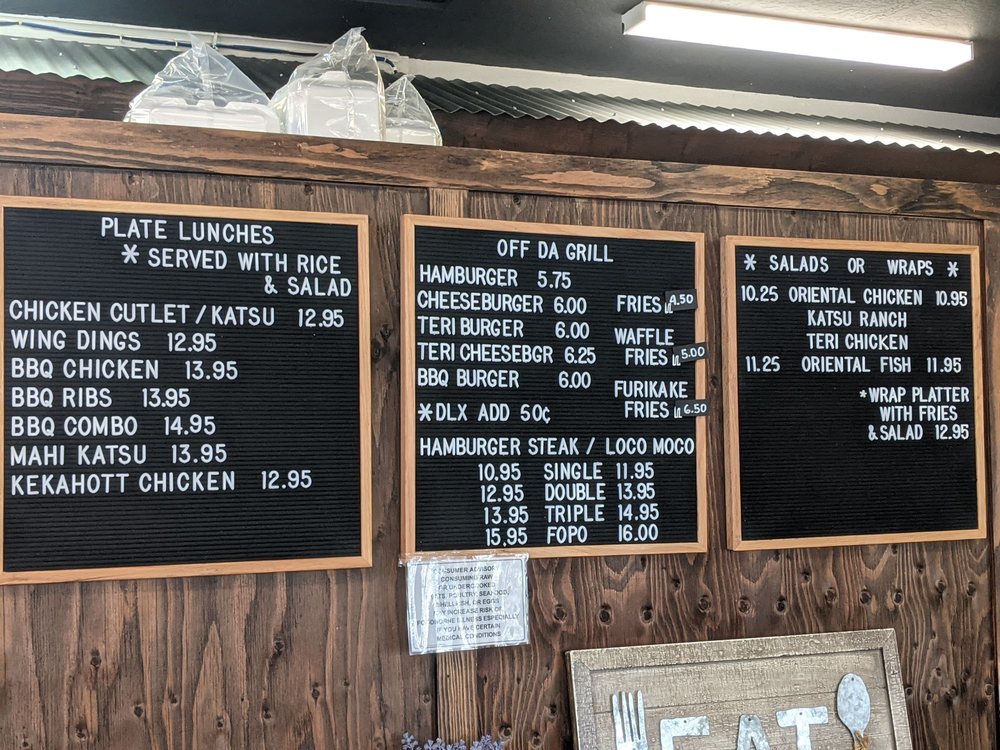 PLATE LUNCHES
* SERVED WITH RICE
& SALAD
CHICKEN CUTLET / KATSU 12.95
WING DINGS 12.95
BBQ CHICKEN 13.95
BBQ RIBS 13.95
BBQ COMBO 14.95
MAHI KATSU 13.95
KEKAHOTT CHICKEN 12.95
OFF DA GRILL
HAMBURGER 5.75
CHEESEBURGER 6.00
TERI BURGER 6.00
TERI CHEESEBGR 6.25
BBQ BURGER 6.00
*DLX ADD 50¢
FRIES 4.50
WAFFLE
FRIES 5.00
FURIKAKE
FRIES 6.50
HAMBURGER STEAK / LOCO MOCO
10.95 SINGLE 11.95
12.95 DOUBLE 13.95
13.95 TRIPLE 14.95
15.95 FOPO 16.00
* SALADS OR WRAPS *
10.25 ORIENTAL CHICKEN 10.95
KATSU RANCH
TERI CHICKEN
11.25 ORIENTAL FISH 11.95
*WRAP PLATTER
WITH FRIES
& SALAD 12.95
CONSUMER ADVISORY
CONSUMING RAW
OR UNDERCOOKED
POULTRY, SEAFOOD,
SHELLFISH, OR EGGS
MAY INCREASE RISK OF
FOODBORNE ILLNESS ESPECIALLY
IF YOU HAVE CERTAIN
MEDICAL CONDITIONS
EAT